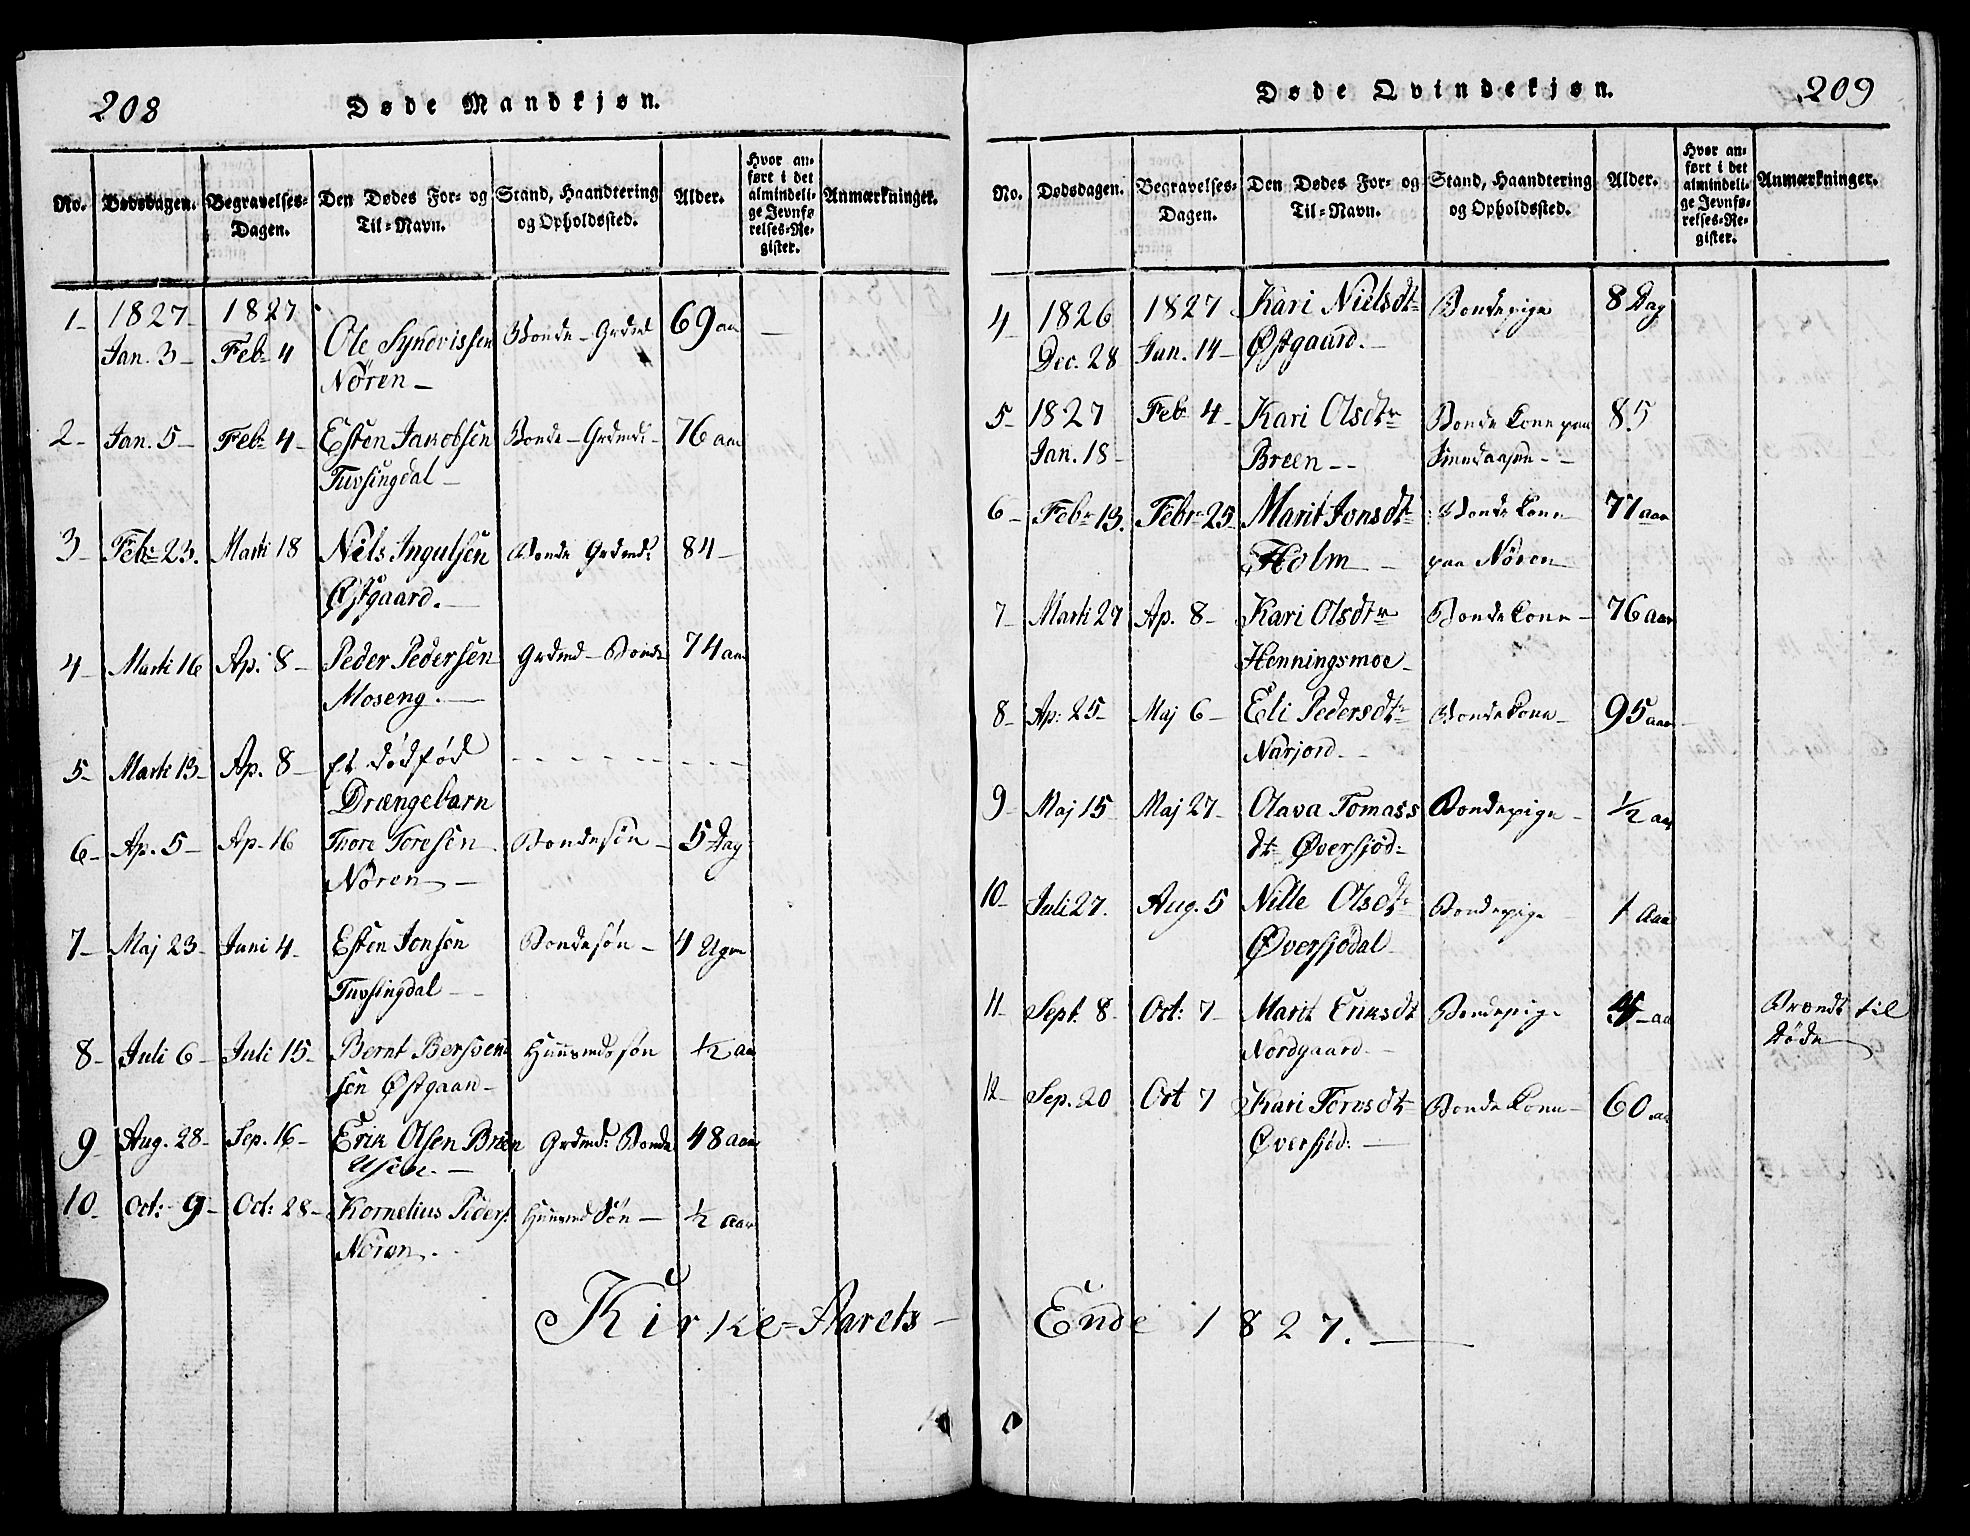 208
Døde Mandkjøn.
No.
Dødsdagen.
Begravelses-
Dagen.
Den Dødes For- og
Til-Navn.
Stand, Haandtering
og Opholdssted.
Alder.
Hvor an-
ført i det
almindeli-
ge Jevnfø-
relses-Re-
gister.
Anmærkninger.
1-
1827-
Jan. 3-
1827
Febr 4
Ole Syndvissen
Nøren-
Bonde-Grdmd
69 aar
-
2-
Jan. 5-
Febr 4-
Esten Jacobsen
Tufsingdal-
Bonde-Grdmd:-
76 aar
3-
Febr 23.
Marti 18
Niels Ingulsen
Østgaard.-
Bonde Grdmd:
84-
4-
Marti 16
Ap. 8-
Peder Pedersen
Moseng.-
Grdmd-Bonde
74 aar
5-
Marti 13-
Ap. 8-
Et dødfød
Drængebarn
- - - - - - - - -
6-
Ap. 5-
Ap. 16
Thore Toresen
Nøren-
Bondesøn-
5 Dag
7-
Maj 23-
Juni 4-
Esten Jonsen
Tufsingdal--
Bondesøn-
4 Uger
8-
Juli 6-
Juli 15-
Bernt Bersven
sen Østgaar-
Huusmdssøn
½ aar
9-
Aug. 28-
Sep. 16-
Erik Olsen Breen
Grdmd: Bonde
48 aar
10-
Oct: 9-
Oct: 28-
Kornelius Peders:
Nøren.-
Huusmd Søn-
½ aar
Kirke-Aarets-
Døde Qvindekjøn.
209
No.
Dødsdagen.
Begravelses-
Dagen.
Den Dødes For- og
Til-Navn.
Stand, Haandtering
og Opholdssted.
Alder.
Hvor an-
ført i det
almindeli-
ge Jevnfø-
relses-Re-
gister.
Anmærkninger.
4-
1826
Dec. 28
1827
Jan. 14-
Kari Nielsdtr
Østgaard.-
Bondepige
8 Dag
5-
1827
Jan. 18-
Febr 4-
Kari Olsdtr
Breen--
Bondekone paa
85
6-
Febr 13.
Febr 25-
Marit Jonsdtr
Holm-
Bondekone
paa Nøren
77 aar
7-
Marti 27
Ap. 8-
Kari Olsdtr
Henningsmoe-
Bondekone-
76 aar
8-
Ap: 25-
Maj 6-
Eli Pedersdtr
Narjord--
Bondekone-
95 aar-
9-
Maj 15
Maj 27-
Olava Tomass
dtr Øversjød-
Bondepige-
½ aar
10-
Juli 27.
Aug. 5
Nille Olsdtr
Øversjødal-
Bondepige
1 Aar
11-
Sept. 8-
Oct: 7-
Marit Eriksdt
Nordgaard-
Bondepige
4-aar
Brændt til
Døde-
12-
Sep. 20
Oct 7
Kari Toresdtr
Øversjød:-
Bondekone-
60 aar
Ende 1827.-